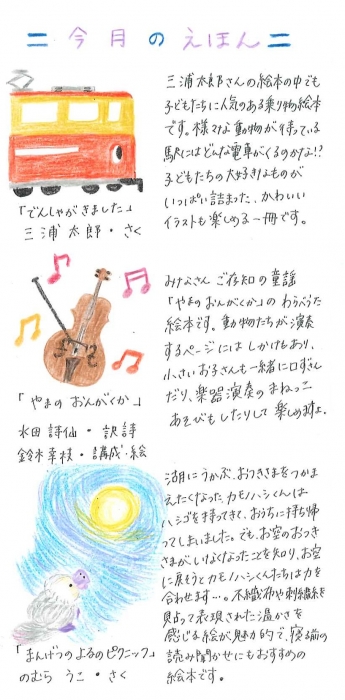 = 今月のえほん =
三浦太郎さんの絵本の中でも
子どもたちに人気のある乗り物絵本
です。様々な動物が待っている
駅にはどんな電車がくるのかな!?
子どもたちの大好きなものが
いっぱい詰まった、かわいい
イラストも楽しめる一冊です。
「でんしゃがきました」
三浦太郎・さく
みなさんご存知の童謡
「やまのおんがくか」のわらべうた
絵本です。動物たちが演奏
するページにはしかけもあり、
小さいお子さんも一緒に口ずさん
だり、楽器演奏のまねっこ
あそびもしたりして楽しめますよ。
「やまのおんがくか」
水田詩仙・訳詩
鈴木幸枝・構成・絵
湖にうかぶ、おつきさまをつかま
えたくなったカモノハシくんは
ハシゴを持ってきて、おうちに持ち帰
ってしまいました。でも、お空のおつき
さまが、いなくなったことを知り、お空
に戻そうとカモノハシくんたちは力を
合わせます…。不織布や刺繍糸を
見立って表現された温かさを
感じる絵が魅力的で、寝る前の
読み聞かせにもおすすめの
絵本です。
「まんげつのよるのピクニック」
のむらうこ・さく